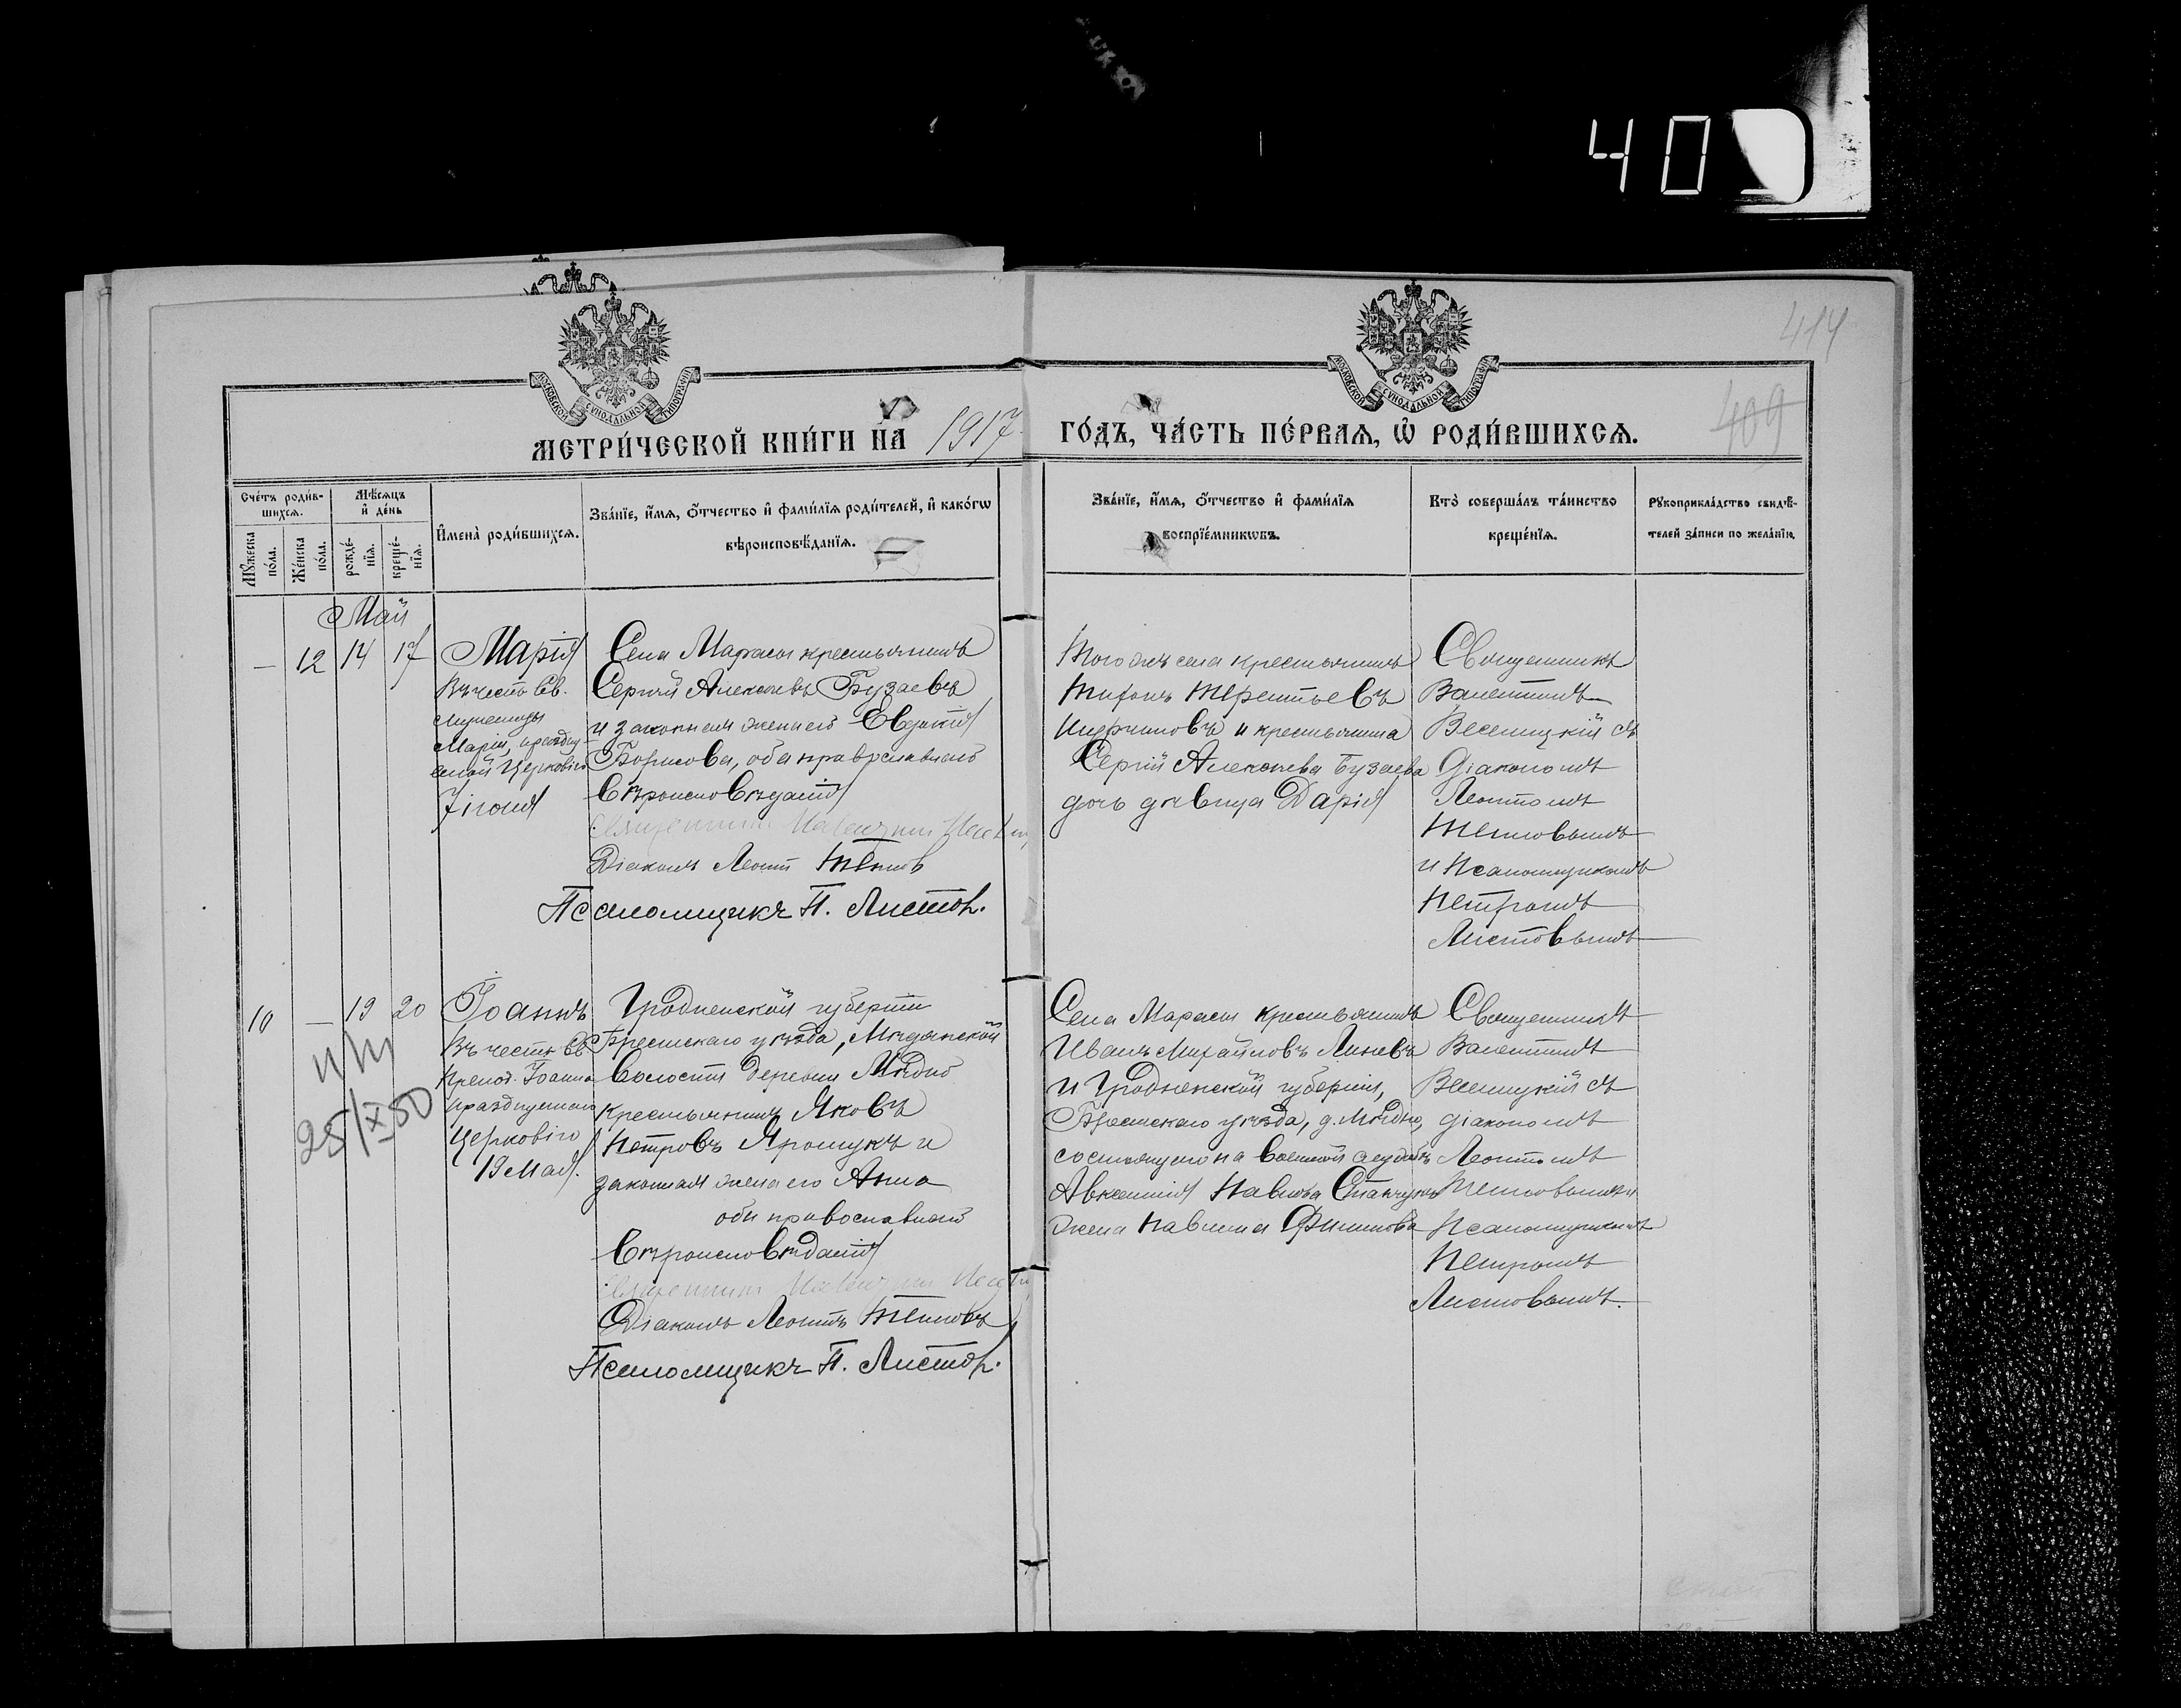 40
414
409
МОСКОВСКОЙ СУНОДАЛЬНОЙ ТИПОГРАФІИ
МОСКОВСКОЙ СУНОДАЛЬНОЙ ТИПОГРАФІИ
МЕТРИ́ЧЕСКОЙ КНИ́ГИ НА 1917
ГО́ДЪ, ЧА́СТЬ ПЕ́РВАѦ, Ѡ҆ РОДИ́ВШИХСѦ.
Сче́тъ роди́в-
шихсѧ.
Мꙋ́жеска
по́ла.
Же́нска
по́ла.
Мѣ́сѧцъ
и҆ де́нь
рожде́-
нїѧ.
креще́-
нїѧ.
И҆мена̀ роди́вшихсѧ.
Зва́нїе, и҆́мѧ, ѻ҆́тчество и҆ фами́лїѧ роди́телей, и҆ како́гѡ
вѣроисповѣ́данїѧ.
Зва́нїе, и҆́мѧ, ѻ҆́тчество и҆ фами́лїѧ
воспрїе́мникѡвъ.
Кто̀ соверша́лъ та́инство
креще́нїѧ.
Рꙋкоприкла́дство свидѣ́-
телей за́писи по жела́нїю.
Май
— 12 14 17
Марія
Въ честь Св.
мученицы
Маріи, празднуе-
емой Церковію
7 іюня
Села Марасы крестьянинъ
Сергѣй Алексѣевъ Бузаевъ
и законная жена его Евдокія
Борисова, оба православнаго
вѣроисповѣданія
Священникъ
Діаконъ Леонтій Теплов
Псаломщикъ П. Листов.
Того же села крестьянинъ
Тихонъ Терентьевъ
и крестьянина
Сергій Алексѣева Бузаева
дочь дѣвица Дарія
Священникъ
Валентинъ
Веселицкій съ
діакономъ
Леонтіемъ
Тепловымъ
и Псаломщикомъ
Петромъ
Листовымъ
10 — 19 20
25/X 50
Іоаннъ
Въ честь Св.
Препод. Іоанна
празднуемаго
Церковію
19 Мая.
Гродненской губерніи
Брестскаго уѣзда, Мѣднянской
волости деревни Мѣдно
крестьянинъ Яковъ
Петровъ Ярошукъ и
законная жена его Анна
оба православнаго
вѣроисповѣданія
Священникъ
Діаконъ Леонтій Тепловъ
Псаломщикъ П. Листов.
Села Марасы крестьянинъ
Иванъ Михайловъ Линевъ
и Гродненской губерніи,
Брестскаго уѣзда, д. Мѣдно,
состоящаго на военной службѣ
Авксентія Павлова
жена Павлина Филиппова
Священникъ
Валентинъ
Веселицкій съ
діакономъ
Леонтіемъ
Тепловымъ и
Псаломщикомъ
Петромъ
Листовымъ.